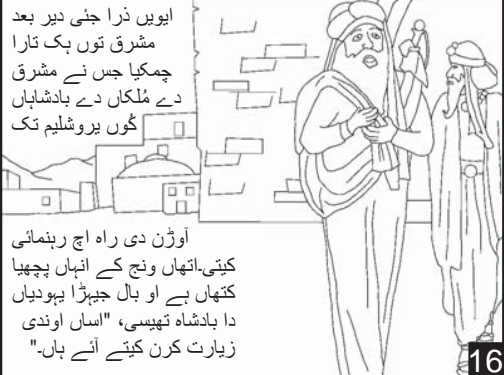 ایویں ذرا جئی دیر بعد
مشرق توں ہک تارا
چمکیا جس نے مشرق
دے مُلکاں دے بادشاہاں
کُوں یروشلیم تک
آوڑن دی راہ اچ رہنمائی
کیتی۔اتھاں ونج کے انہاں پچھیا
کتھاں ہے او بال جیہڑا یہودیاں
دا بادشاہ تھیسی، "اساں اوندی
زیارت کرن کیتے آئے ہاں۔"
16